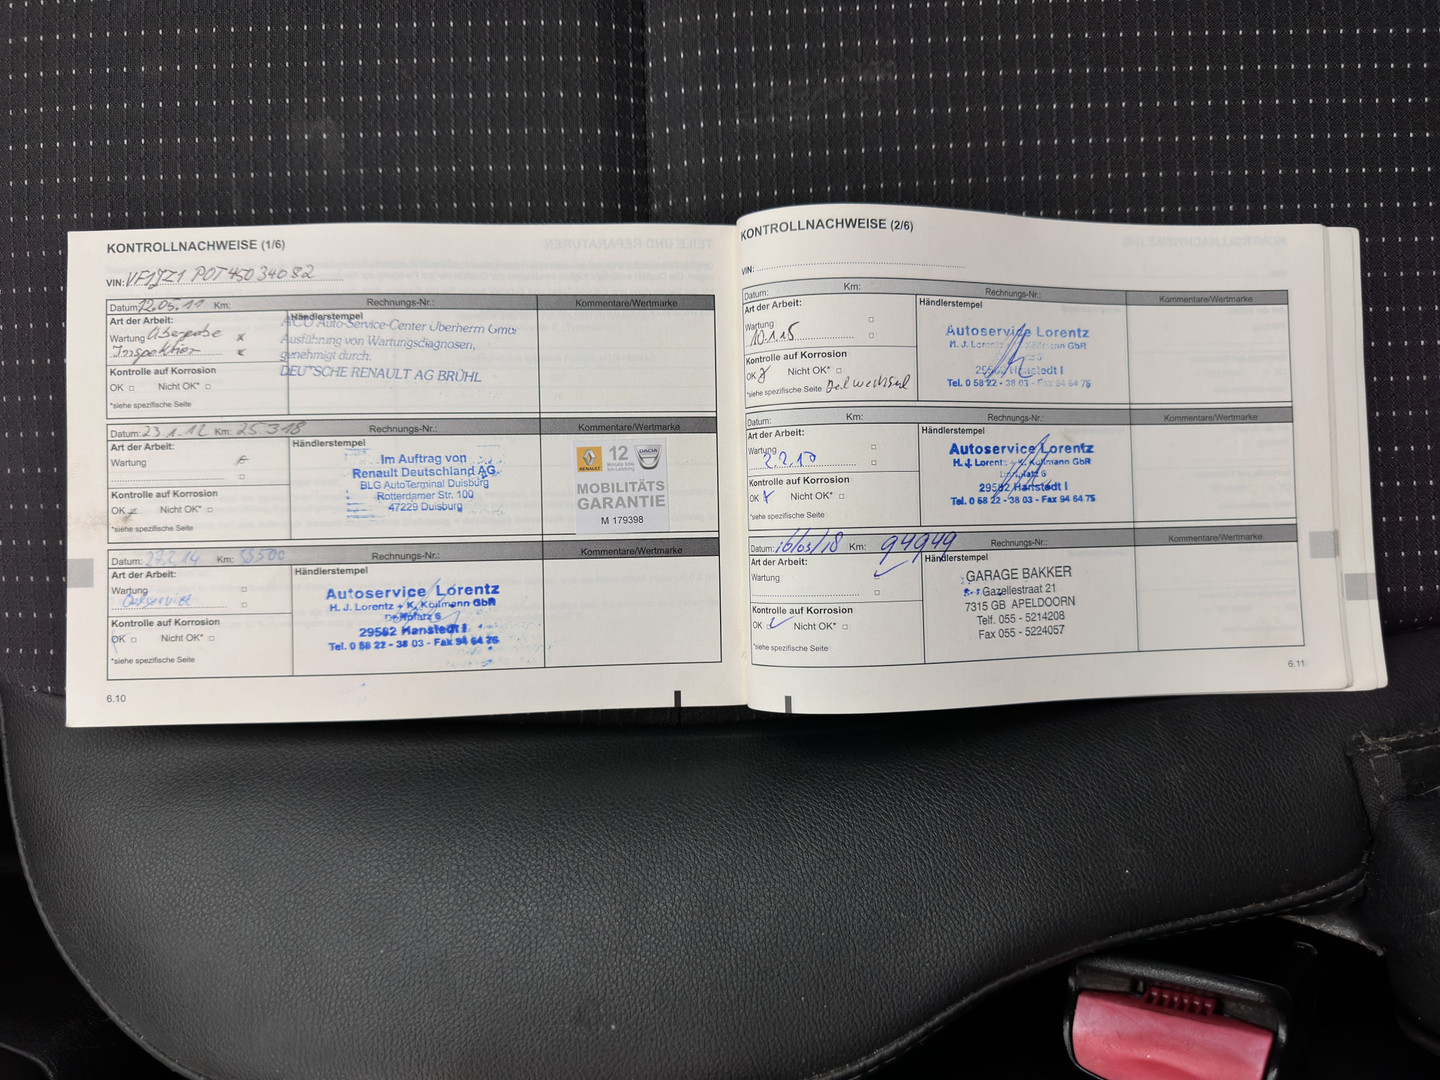 KONTROLLNACHWEISE (1/6)
VIN: VF1JZ1
Datum: 12.05.11 Km: Rechnungs-Nr.: Kommentare/Wertmarke
Art der Arbeit: Händlerstempel
Wartung Übergabe x
Inspektion x
ACO Auto-Service-Center Überherrn GmbH
Ausführung von Wartungsdiagnosen,
genehmigt durch.
DEUTSCHE RENAULT AG BRÜHL
Kontrolle auf Korrosion
OK □ Nicht OK* □
*siehe spezifische Seite
Datum: 23.1.12 Km: 25318 Rechnungs-Nr.: Kommentare/Wertmarke
Art der Arbeit: Händlerstempel
Wartung
Im Auftrag von
Renault Deutschland AG
BLG AutoTerminal Duisburg
Rotterdamer Str. 100
47229 Duisburg
RENAULT 12 DACIA
MOBILITÄTS
GARANTIE
M 179398
Kontrolle auf Korrosion
OK Nicht OK* □
*siehe spezifische Seite
Datum: 27.2.14 Km: Rechnungs-Nr.: Kommentare/Wertmarke
Art der Arbeit: Händlerstempel
Wartung
Autoservice Lorentz
H. J. Lorentz + K. Kollmann GbR
Dorfplatz 6
29582 Hanstedt I
Tel. 0 58 22 - 38 03 - Fax 94 64 75
Kontrolle auf Korrosion
OK □ Nicht OK* □
*siehe spezifische Seite
6.10
KONTROLLNACHWEISE (2/6)
VIN:
Datum: Km: Rechnungs-Nr.: Kommentare/Wertmarke
Art der Arbeit: Händlerstempel
Wartung □
10.1.15 □
Autoservice Lorentz
H. J. Lorentz K. Kollmann GbR
29582 Hanstedt I
Tel. 0 58 22 - 38 03 - Fax 94 64 75
Kontrolle auf Korrosion
OK Nicht OK* □
*siehe spezifische Seite Oelwechsel
Datum: Km: Rechnungs-Nr.: Kommentare/Wertmarke
Art der Arbeit: Händlerstempel
Wartung □
□
Autoservice Lorentz
H. J. Lorentz K. Kollmann GbR
29582 Hanstedt I
Tel. 0 58 22 - 38 03 - Fax 94 64 75
Kontrolle auf Korrosion
OK Nicht OK* □
*siehe spezifische Seite
Datum: 16/05/18 Km: 94949 Rechnungs-Nr.: Kommentare/Wertmarke
Art der Arbeit: Händlerstempel
Wartung
GARAGE BAKKER
Gazellestraat 21
7315 GB APELDOORN
Telf. 055 - 5214208
Fax 055 - 5224057
Kontrolle auf Korrosion
OK Nicht OK* □
*siehe spezifische Seite
6.11